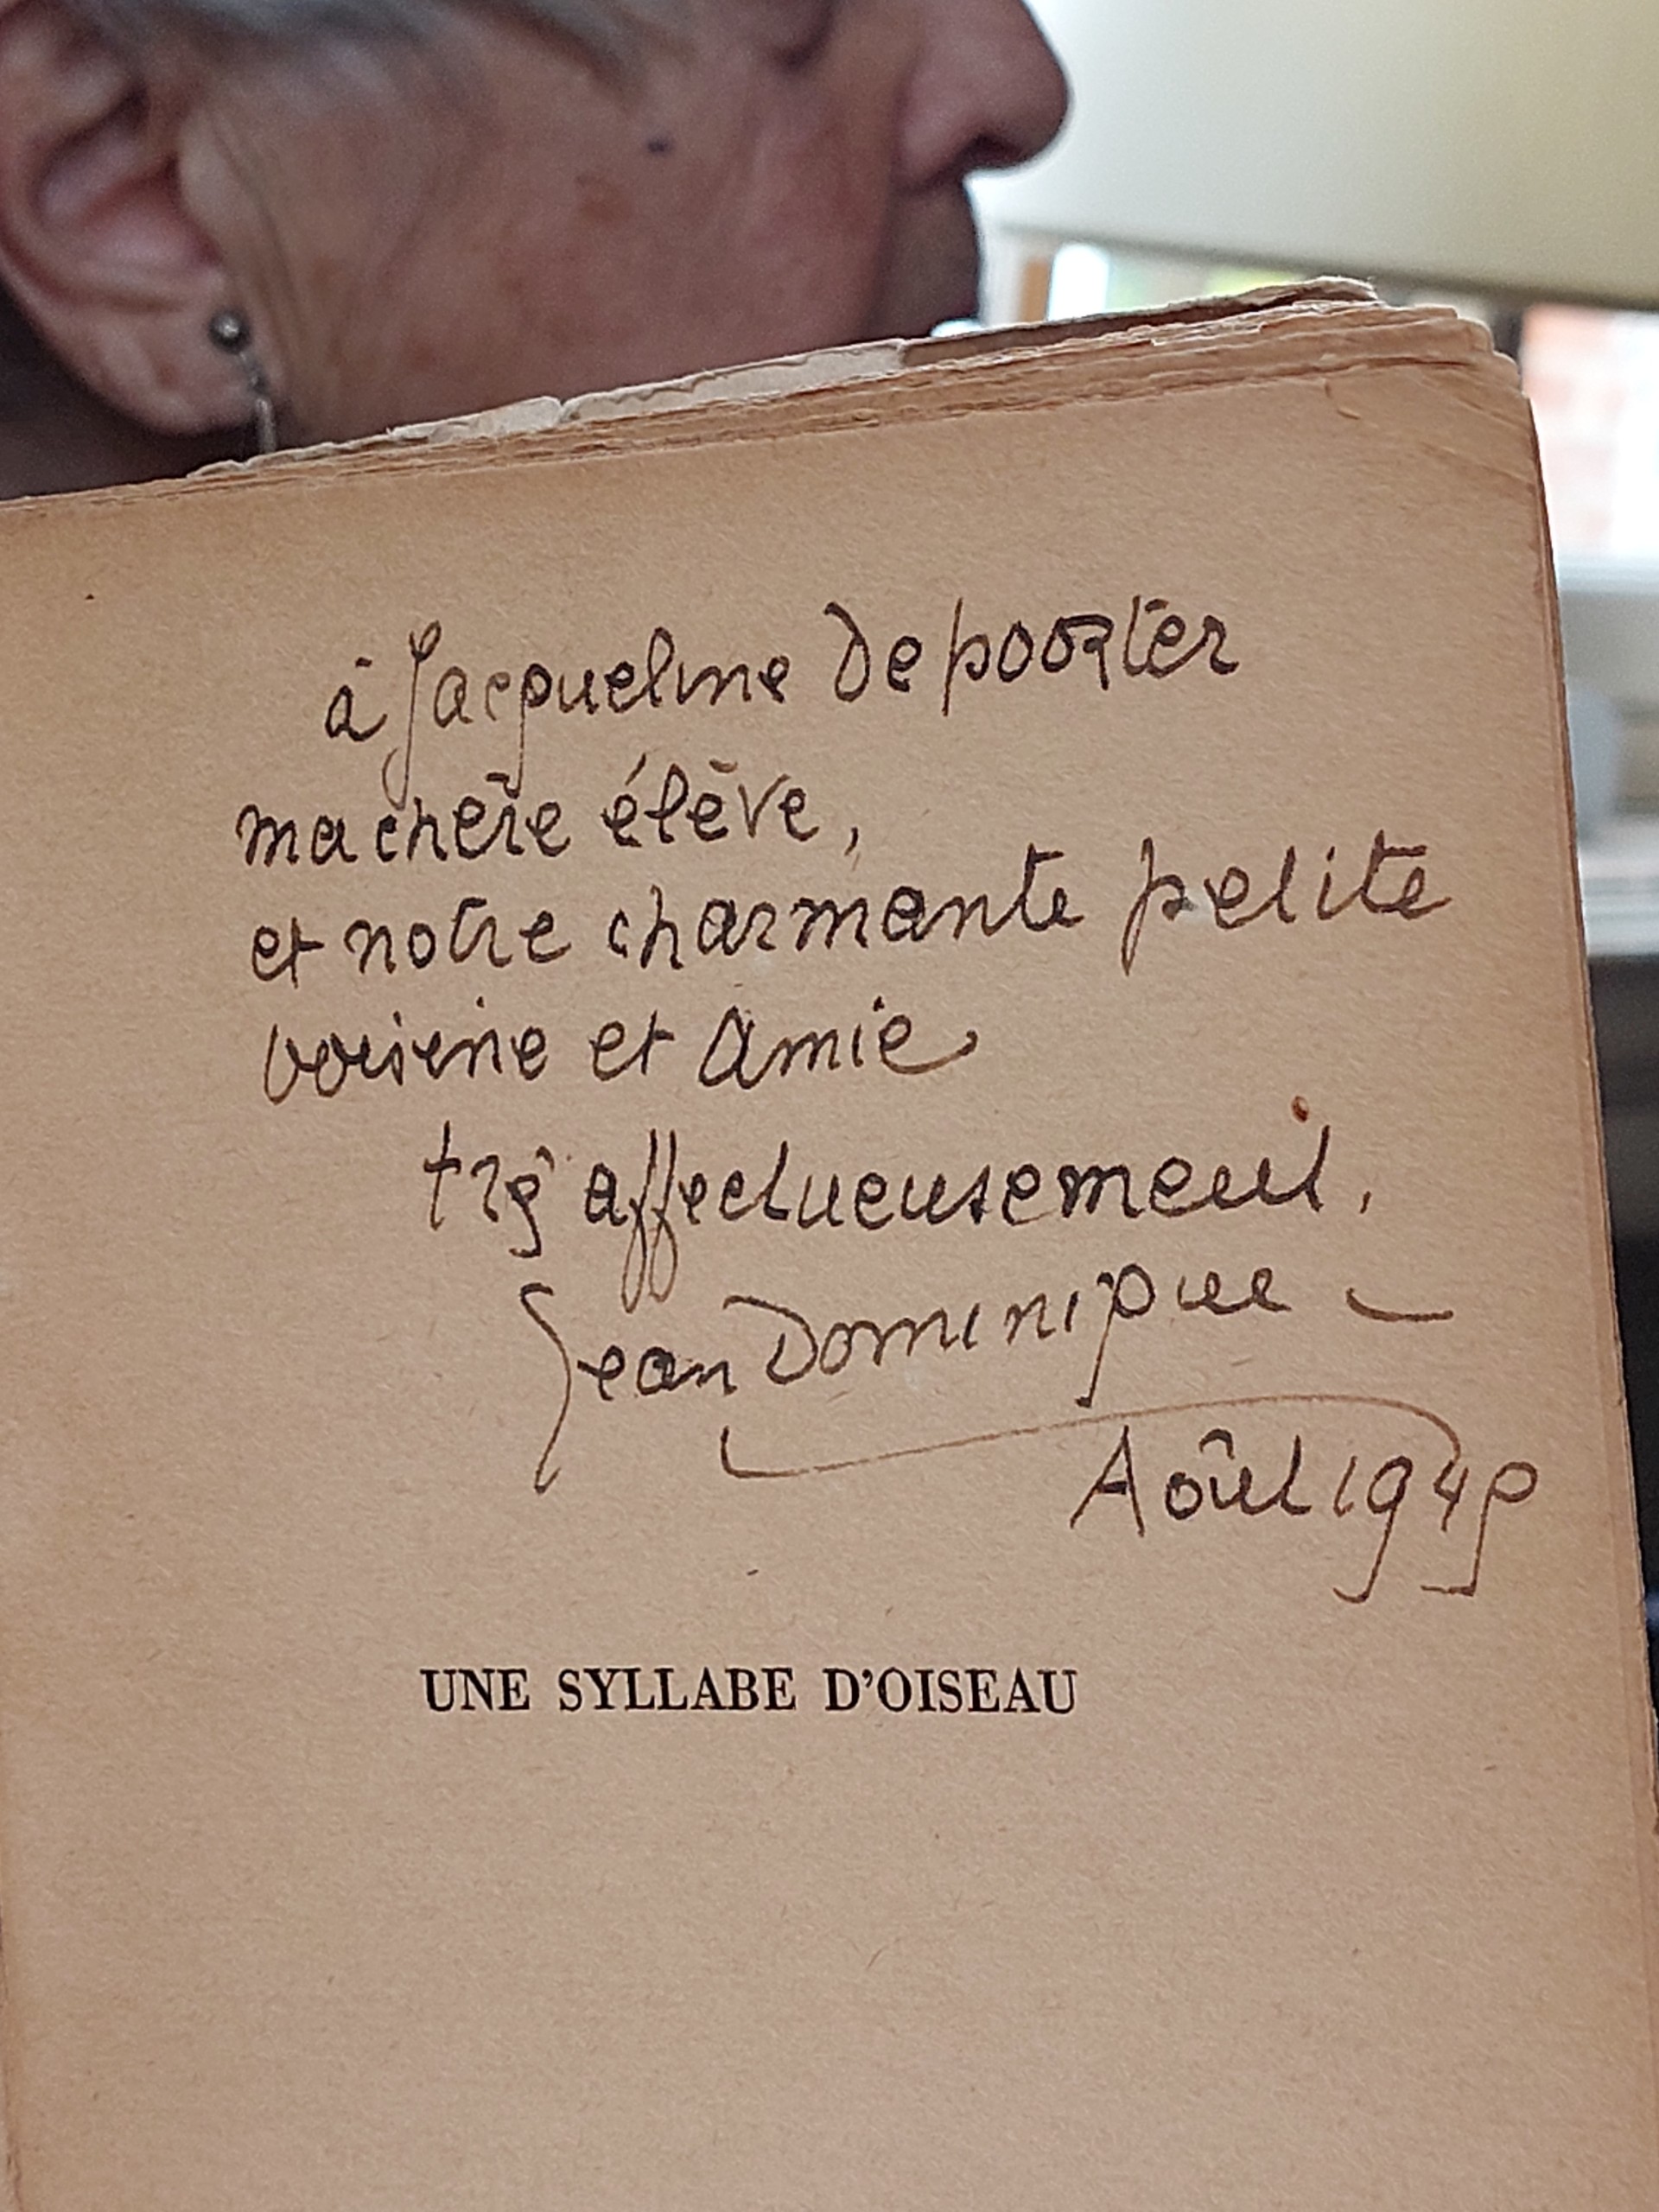 à Jacqueline Depoorter
ma chère élève,
et notre charmante petite
voisine et amie
très affectueusement.
Jean Dominique —
Août 1949
UNE SYLLABE D'OISEAU